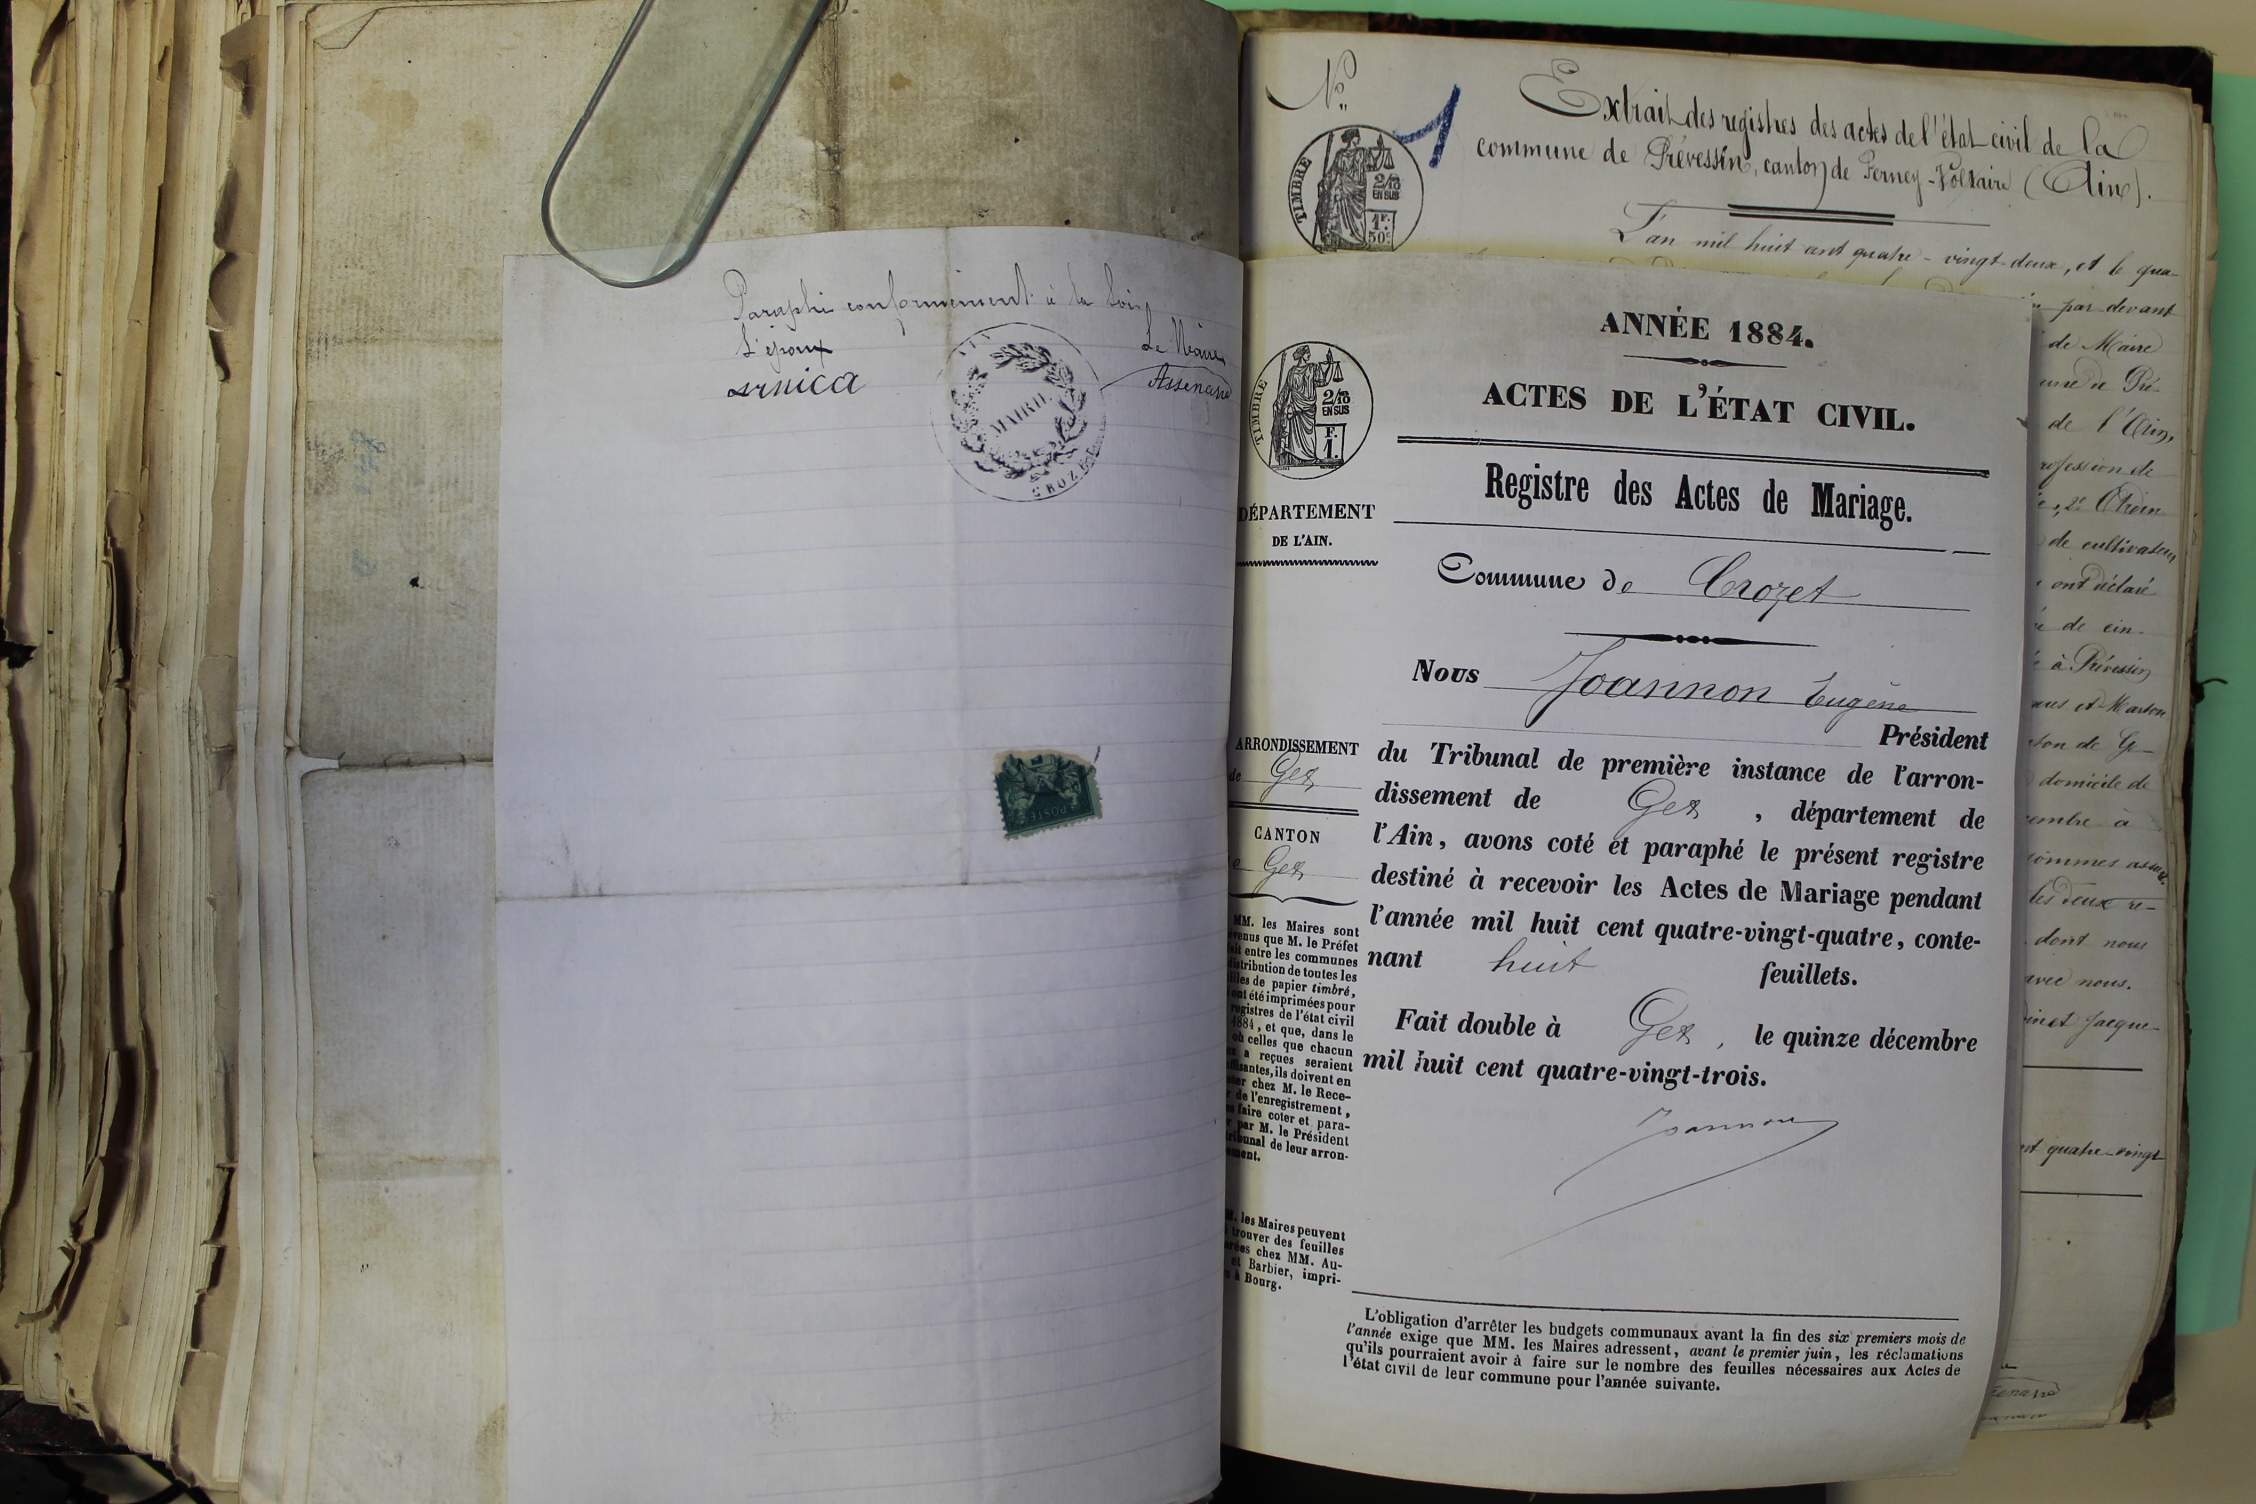 Paraphé conformément à la loi
L'époux
Le Maire
arnica
Assenare
AIN
MAIRIE
CROZET
POSTES
No
1
TIMBRE
2/10
EN SUS
1F.
50c
Extrait des registres des actes de l'état civil de la
commune de Prévessin, canton de Ferney-Voltaire (Ain).
L'an mil huit cent quatre-vingt-deux, et le qua-
par devant
de Maire
de Pré-
de l'Ain,
rofession de
de cultivateur
ont déclaré
de cin-
à Prévessin
de G-
domicile de
embre à
sommes
les deux re-
dont nous
avec nous.
Jacque-
quatre-vingt
ANNÉE 1884.
ACTES DE L'ÉTAT CIVIL.
Registre des Actes de Mariage.
TIMBRE
2/10
EN SUS
F.
1.
DÉPARTEMENT
DE L'AIN.
Commune de Crozet
Nous Joannon Eugène
Président
du Tribunal de première instance de l'arron-
dissement de Gex, département de
l'Ain, avons coté et paraphé le présent registre
destiné à recevoir les Actes de Mariage pendant
l'année mil huit cent quatre-vingt-quatre, conte-
nant huit feuillets.
Fait double à Gex, le quinze décembre
mil huit cent quatre-vingt-trois.
Joannon
ARRONDISSEMENT
de Gex
CANTON
e Gex
MM. les Maires sont
venus que M. le Préfet
ait entre les communes
distribution de toutes les
illes de papier timbré,
ont été imprimées pour
registres de l'état civil
1884, et que, dans le
où celles que chacun
a reçues seraient
ffisantes, ils doivent en
ser chez M. le Rece-
r de l'enregistrement,
es faire coter et para-
r par M. le Président
tribunal de leur arron-
ement.
M. les Maires peuvent
trouver des feuilles
rées chez MM. Au-
et Barbier, impri-
à Bourg.
L'obligation d'arrêter les budgets communaux avant la fin des six premiers mois de
l'année exige que MM. les Maires adressent, avant le premier juin, les réclamations
qu'ils pourraient avoir à faire sur le nombre des feuilles nécessaires aux Actes de
l'état civil de leur commune pour l'année suivante.